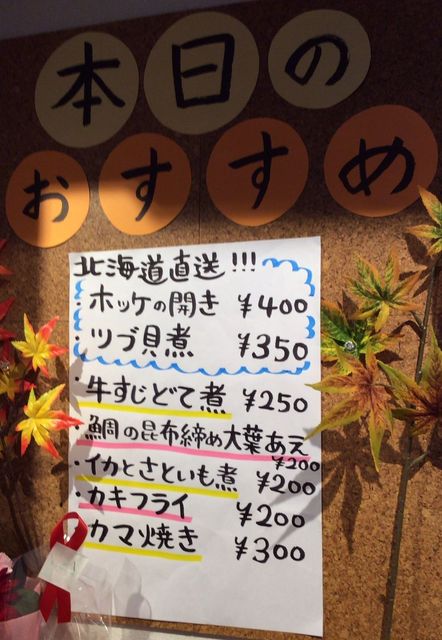 本日の
おすすめ
北海道直送!!!
・ホッケの開き ¥400
・ツブ貝煮 ¥350
・牛すじどて煮 ¥250
・鯛の昆布締め大葉あえ
¥200
・イカとさといも煮 ¥200
・カキフライ ¥200
カマ焼き ¥300